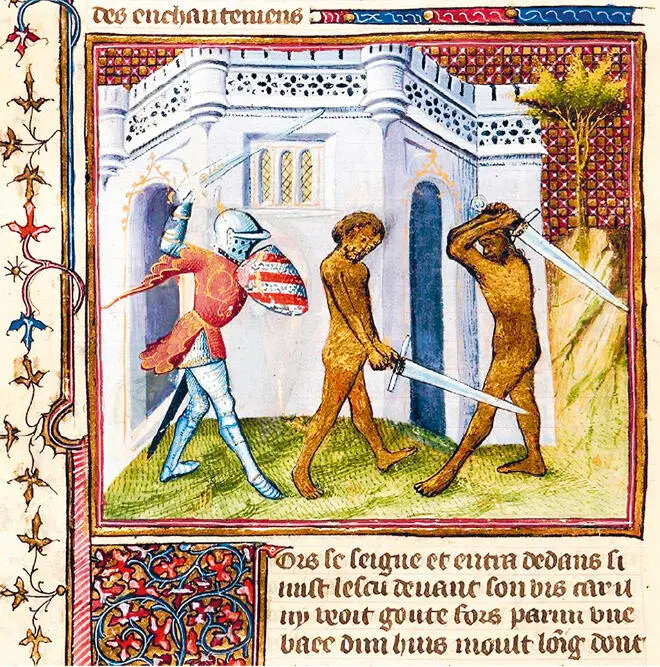 des enchantemens
Ors se seigne et entra dedans si
mist lescu devant son vis car il
ny veoit goute fors parmi une
baee dun huis moult loig dont